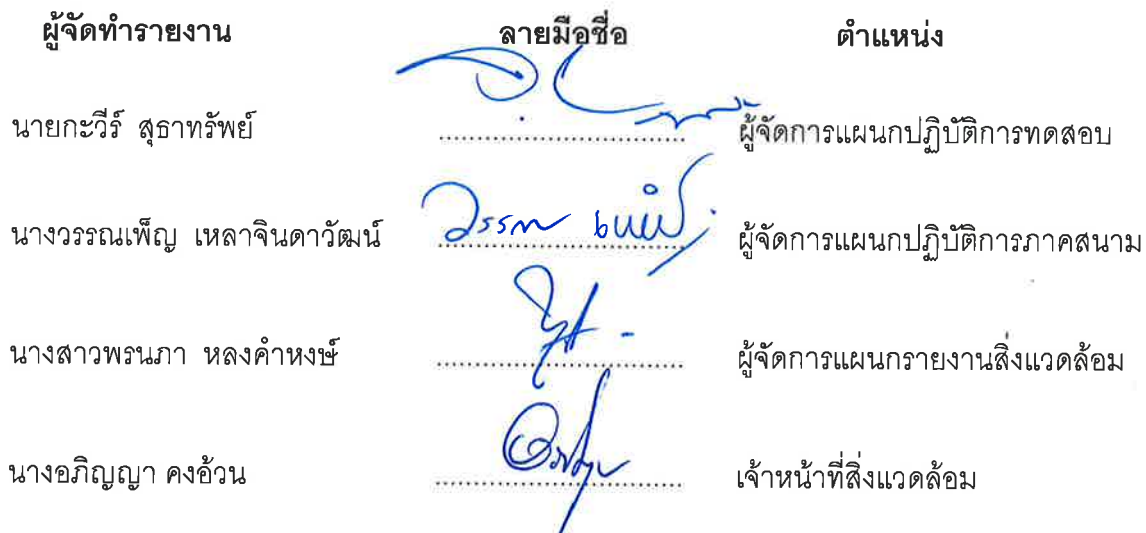 ผู้จัดทำรายงาน ลายมือชื่อ ตำแหน่ง
นายกะวีร์ สุธาทรัพย์ ผู้จัดการแผนกปฏิบัติการทดสอบ
นางวรรณเพ็ญ เหลาจินดาวัฒน์ ผู้จัดการแผนกปฏิบัติการภาคสนาม
นางสาวพรนภา หลงคำหงษ์ ผู้จัดการแผนกรายงานสิ่งแวดล้อม
นางอภิญญา คงอ้วน เจ้าหน้าที่สิ่งแวดล้อม